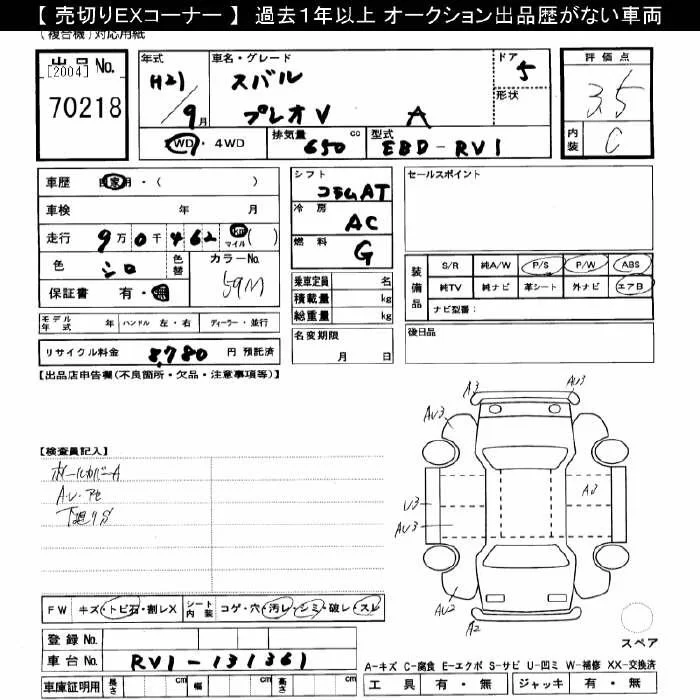 【 売切りEXコーナー 】 過去１年以上 オークション出品歴がない車両
(複合機)対応用紙
出品 No. [2004]
70218
年式 H21 / 9 月
車名・グレード スバル プレオV A
ドア 5
形状
評価点 3.5
内装 C
2WD・4WD
排気量 650 cc
型式 EBD-RV1
車歴 自家用・( )
車検 年 月
走行 9万0千462 km マイル ( )
色 シロ 色替 カラーNo. 59M
保証書 有・無
シフト コラムAT
冷房 AC
燃料 G
乗車定員 名
積載量 kg
総重量 kg
名変期限 月 日
セールスポイント
装備品 S/R 純A/W P/S P/W ABS
純TV 純ナビ 革シート 外ナビ エアB
ナビ型番：
後日品
モデル年式 年 ハンドル 左・右 ディーラー・並行
リサイクル料金 8,780 円 預託済
【出品店申告欄(不良箇所・欠品・注意事項等)】
【検査員記入】
ホールカバーA
下廻りサ
A3 AU3
AU3
U3 A3
AU3
AU2
A2
スペア
FW キズ・トビ石・割レX シート内装 コゲ・穴・汚レ・シミ・破レ・スレ
登録 No.
車台 No. RV1-131361
車庫証明用 長さ cm 幅 cm 高さ cm
A-キズ C-腐食 E-エクボ S-サビ U-凹ミ W-補修 XX-交換済
工具 有・無 ジャッキ 有・無